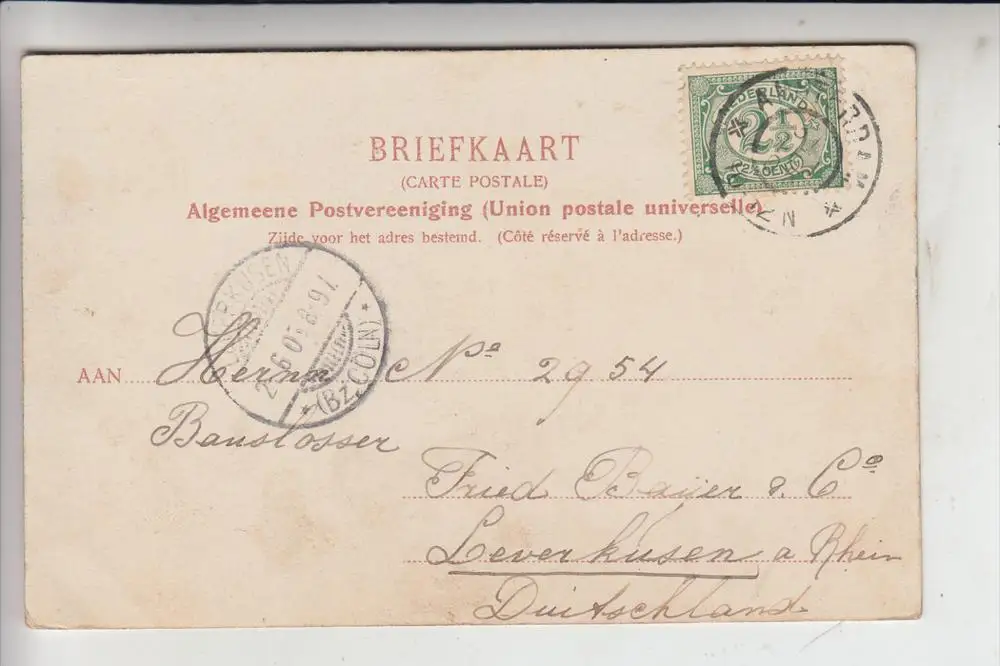 NEDERLAND
2½
(2½ CENT)
AMSTERDAM
BRIEFKAART
(CARTE POSTALE)
Algemeene Postvereeniging (Union postale universelle).
Zijde voor het adres bestemd. (Côté réservé à l'adresse.)
(Bz. CÖLN)
AAN Herrn Nº 2954
Banslosser
Fried Bayer & Cº
Leverkusen a Rhein
Duitschland